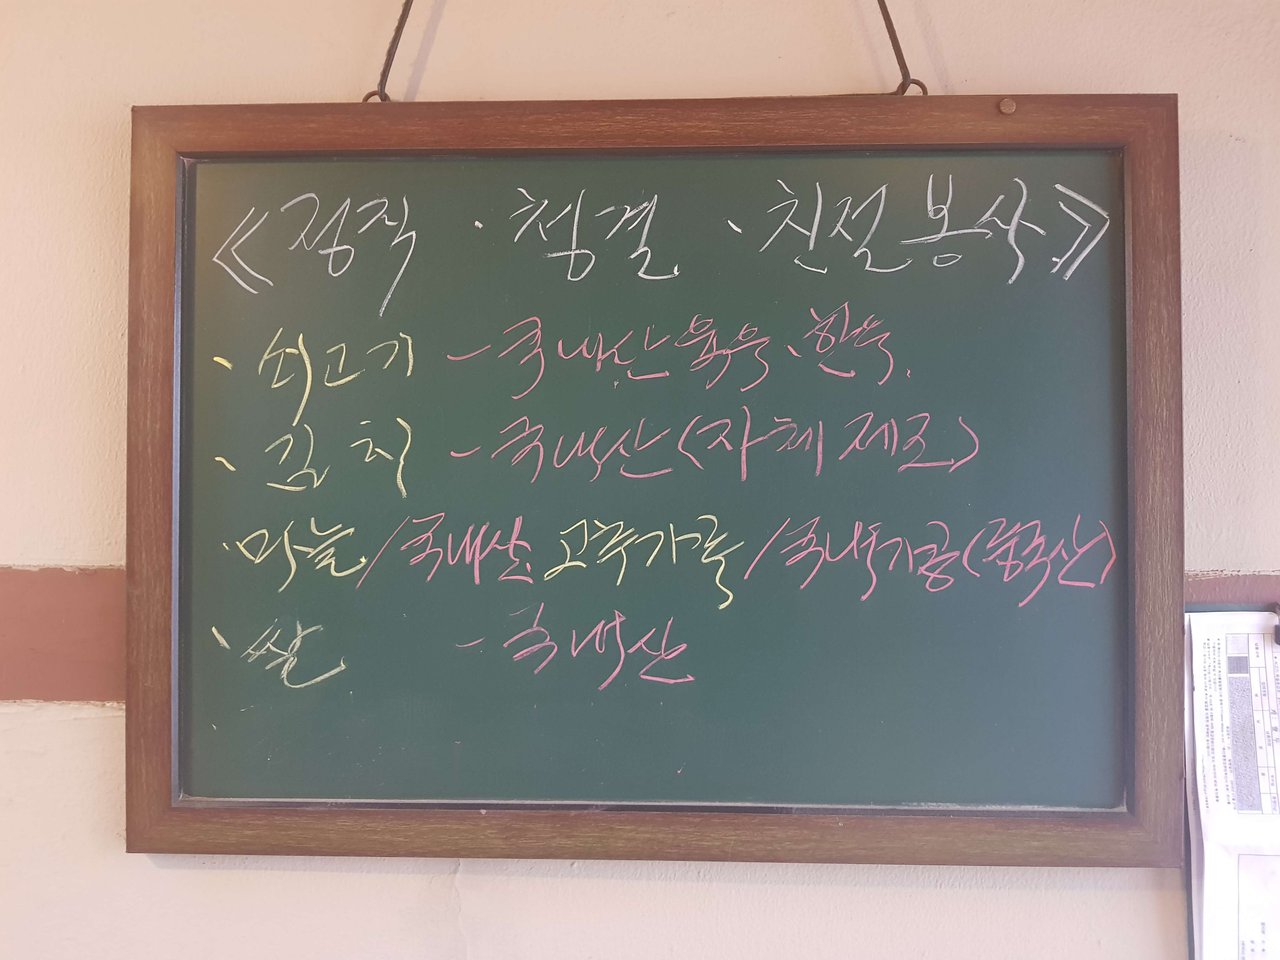 《정직 · 청결 、친절봉사》
、쇠고기 - 국내산 육우、한우.
、김치 - 국내산(자체제조)
·마늘/국내산 고추가루/국내가공(중국산)
、쌀 - 국내산